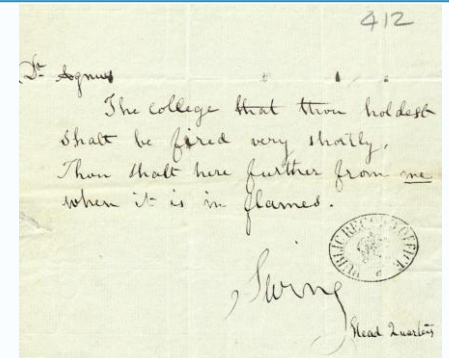 412
Dr Agnus
The college that thou holdest
shalt be fired very shortly.
Thou shalt here further from me
when it is in flames.
Swing
Head Quarters
PUBLIC RECORD OFFICE